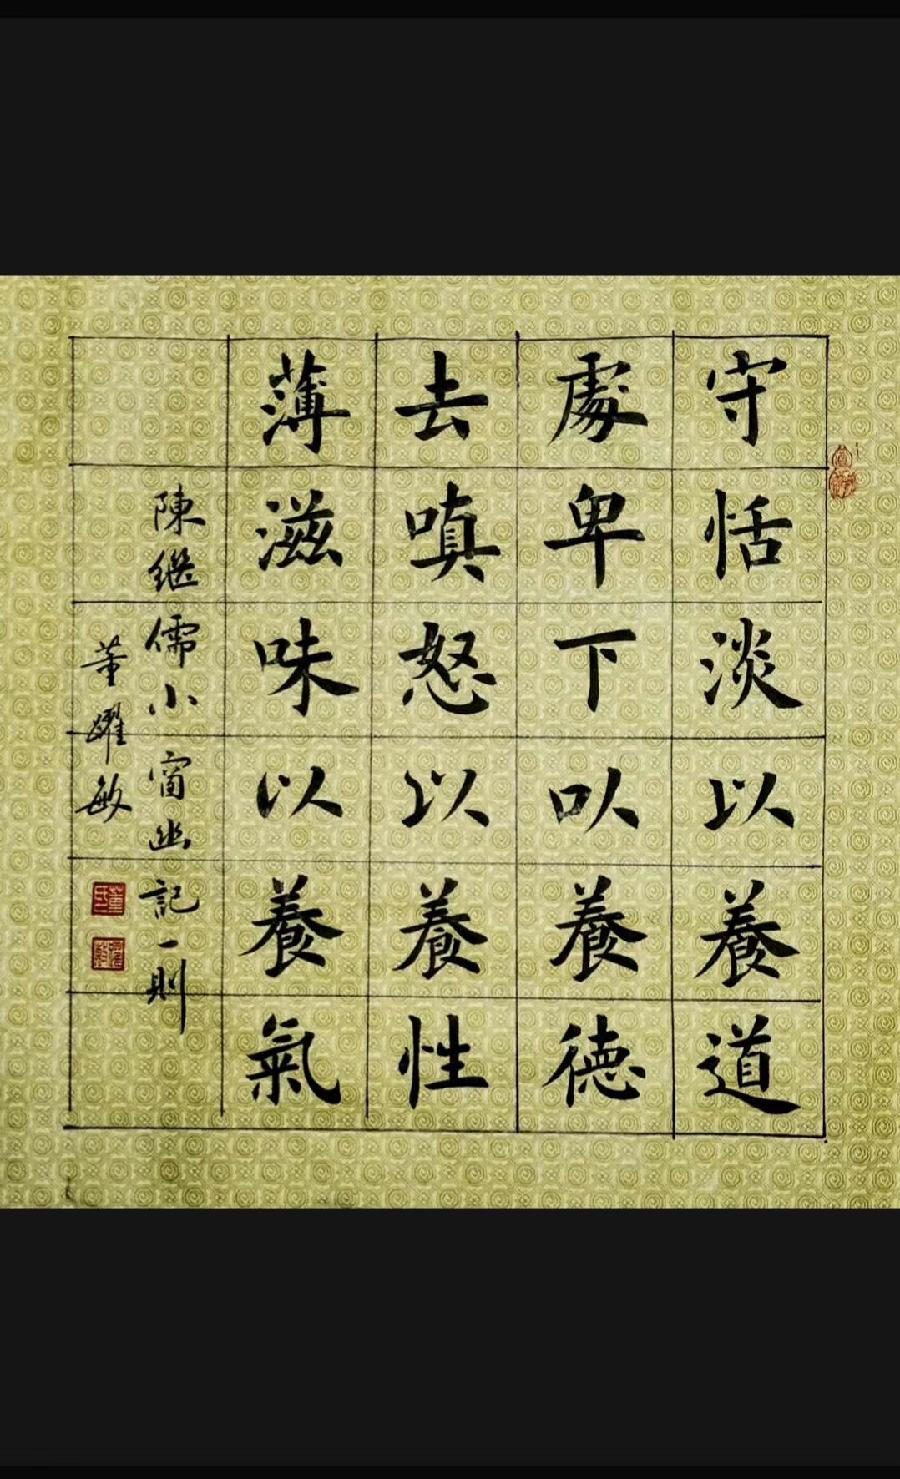 守恬淡以養道
處卑下以養德
去嗔怒以養性
薄滋味以養氣
陳继儒小窗幽記一則
董耀敏